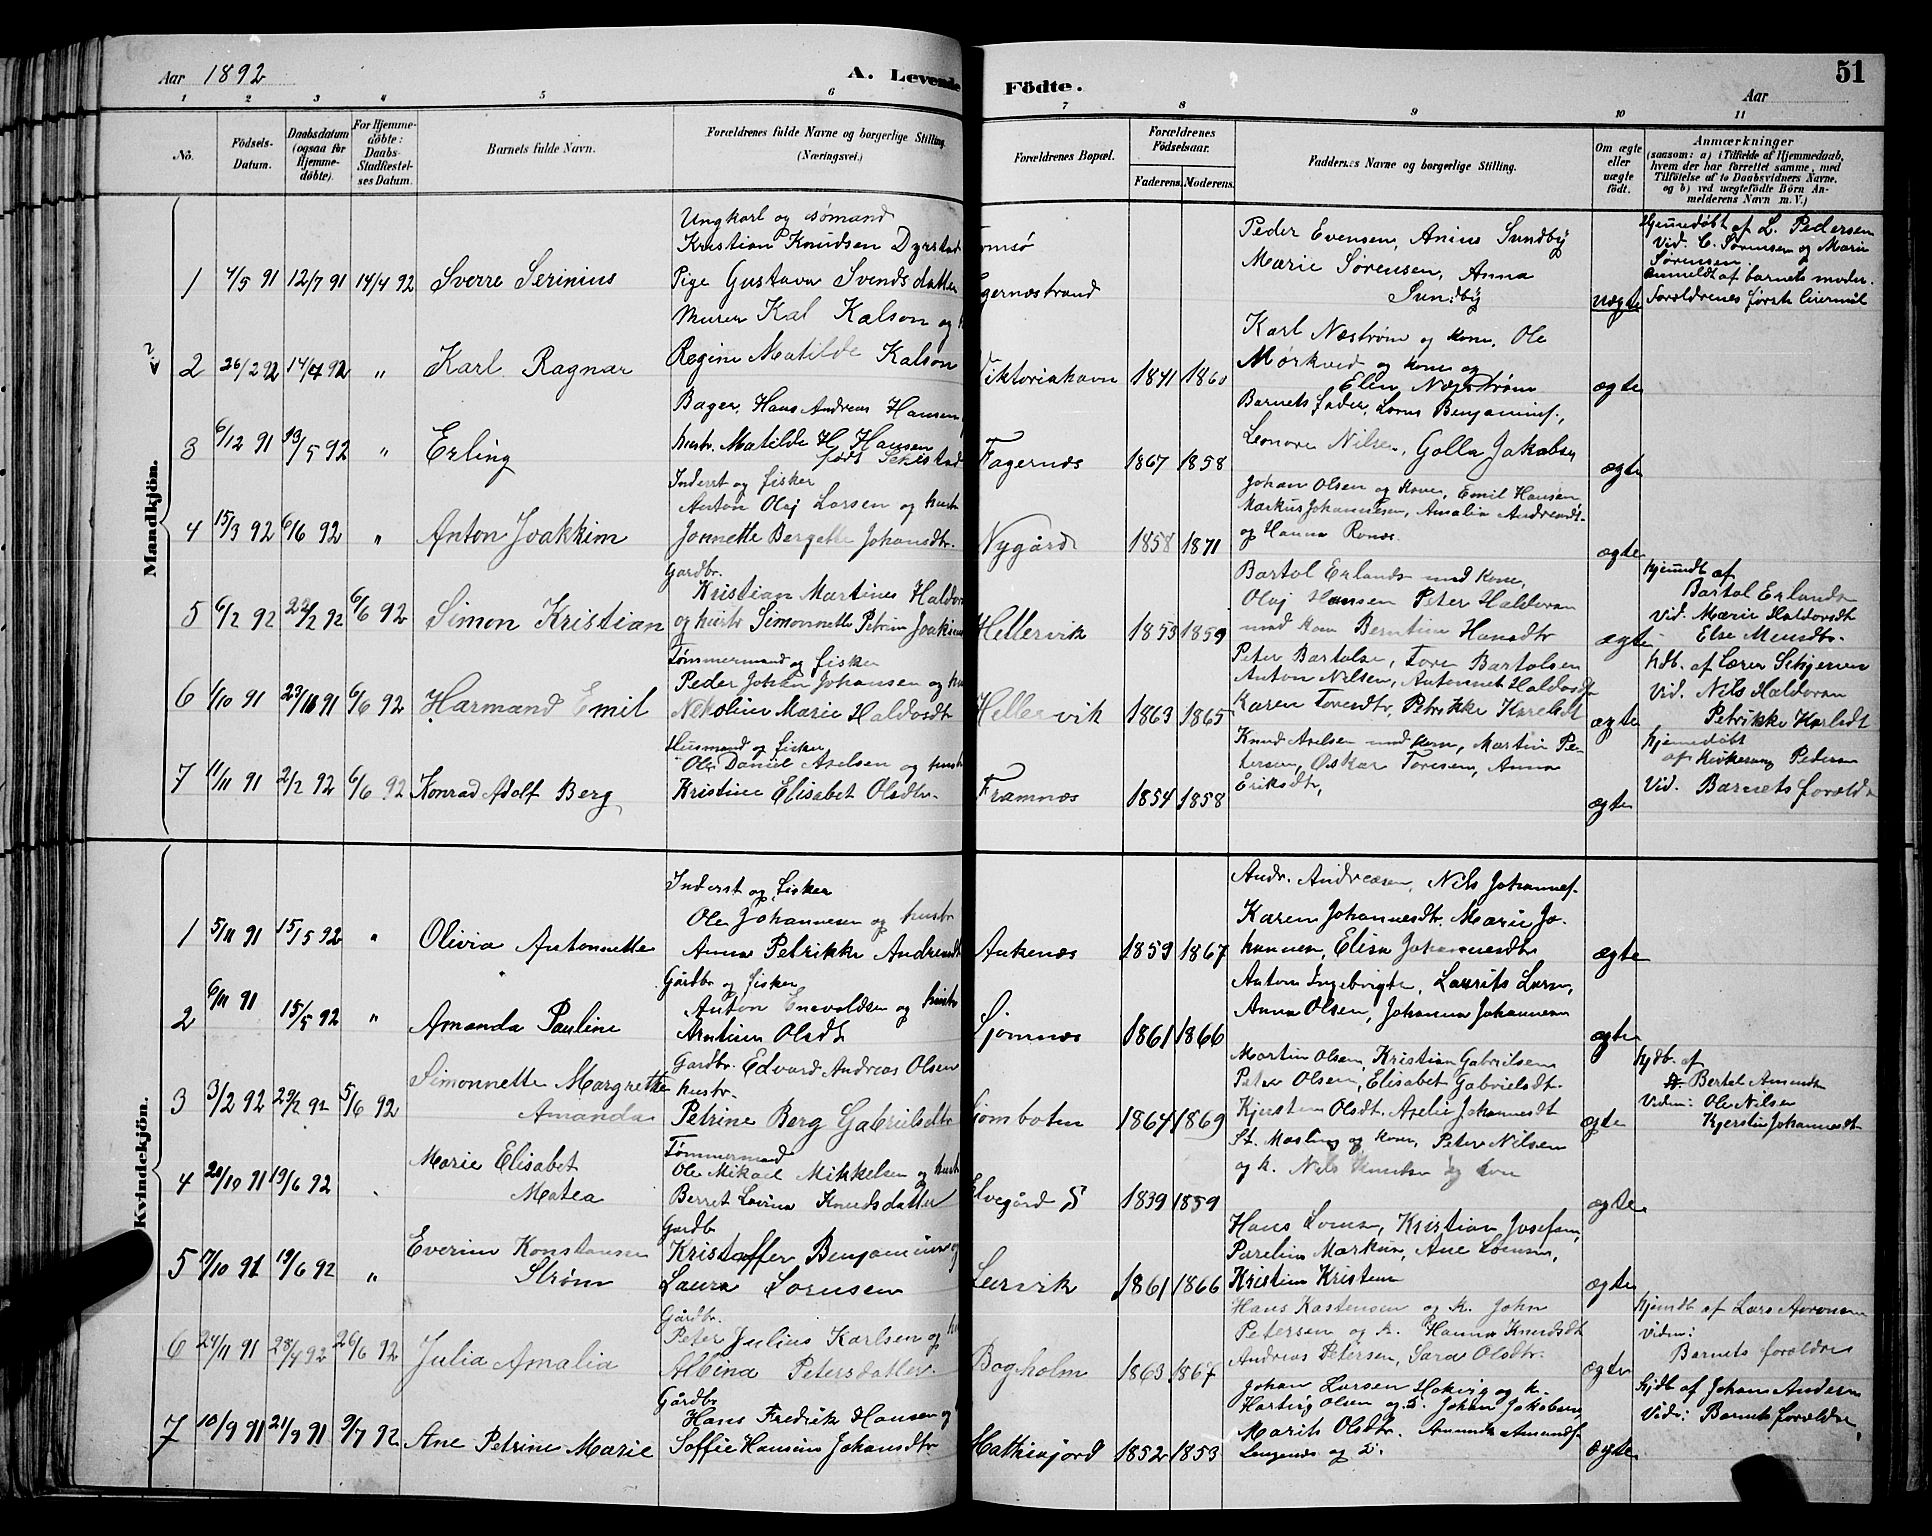 Aar 1892
A. Levende
Födte.
51
Aar
1 2 3 4 5 6 7 8 9 10 11
No.
Födsels-
Datum.
Daabsdatum
(ogsaa for
Hjemme-
döbte).
For Hjemme-
döbte:
Daabs-
Stadfæstel-
ses Datum.
Barnets fulde Navn.
Forældrenes fulde Navne og borgerlige Stilling.
(Næringsvei.)
Forældrenes Bopæl.
Forældrenes
Födselsaar.
Faderens. Moderens.
Faddernes Navne og borgerlige Stilling.
Om ægte
eller
uægte
födt.
Anmærkninger
(saasom: a) i Tilfælde af Hjemmedaab,
hvem der har forrettet samme, med
Tilföielse af to Daabsvidners Navne,
og b) ved uægtefödte Börn An-
melderens Navn m. V.)
Mandkjön.
1 4/5 91 12/7 91 14/4 92 Sverre Serinius
Ungkarl og sømand
Kristian Knudsen Dyrstad
Pige Gustava Svendsdatter
Tromsø
Fagernæstrand
Peder Evensen, Anius Sundby
Marie Sørensen, Anna
Sundby
uægte
Hjemmedøbt af L. Pedersen
Vid. C. Sørensen og Marie
Sørensen
anmeldt af barnets moder.
Foreldrenes første leiermål
2 26/2 92 14/4 92 " Karl Ragnar
Murer Kal Kalson og
Regine Matilde Kalson
Viktoriahavn 1841 1860
Karl Næstrøm og kone, Ole
Mørkved og kone og
Elin Næstrøm
ægte
3 6/12 91 13/5 92 " Erling
Bager, Hans Andreas Hansen
hustr. Matilde H. Hansen
født
Fagernæs 1867 1858
Barnets fader, Lorns Benjamins.,
Leonore Nilsen, Golla Jakobsen
ægte
4 15/3 92 6/6 92 " Anton Joakkim
Inderst og fisker
Anton Olaj Larsen og hustr
Jonnette Bergette Johansdtr.
Nygård 1858 1871
Johan Olsen og kone, Emil Hansen
Markus Johannesen, Amalia Andreasdt.
og Hanna Ronæs.
ægte
5 6/2 92 22/2 92 6/6 92 Simon Kristian
Gardbr.
Kristian Martines Haldor
og hustr Simonnette Petrine Joakim
Hellervik 1853 1859
Bartol Erlands med kone,
Olaj Hansen Peter Haldorsen
med kone Berntine Hansdtr
ægte
Hjemdt af
Bartol Erlands
Vid. Marie Haldorsdt
Else Monsdtr.
6 1/10 91 23/11 91 6/6 92 Harmand Emil
Tømmermand og fisker
Peder Johan Johansen og hu
Nekoline Marie Haldorsdt
Hellervik 1863 1865
Peter Bartolsen, Tore Bartolsen
Anton Nilsen, Antonnet Haldorsdt
Karen Toresdtr, Petrikke Karlsdt
ægte
hdb. af Lærer Schjerven
Vid. Nils Haldorsen
Petrikke Karlsdt
7 11/11 91 2/2 92 6/6 92 Konrad Adolf Berg
Husmand og fisker
Ole Daniel Axelsen og hustr
Kristine Elisabet Olsdtr.
Framnæs 1854 1858
Knud Axelsen med kone, Martin Pe-
tersen, Oskar Toresen, Anna
Eriksdtr,
ægte
Hjemmedøbt
af Kirkesang Pedersen
Vid. Barnets foreldr
Kvindekjön.
1 5/11 91 15/5 92 " Olivia Antonnette
Inderst og fisker
Ole Johannesen og hustr
Anna Petrikke Andreasdt
Ankenæs 1859 1867
Andr. Andreasen, Nils Johannes.
Karen Johannesdtr. Marie Jo-
hannesen, Elisa Johannesdtr
ægte
2 6/11 91 15/5 92 " Amanda Pauline
Gårdbr og fisker
Anton Enevoldsen og hustr
Arntine Olsdt
Sjomnæs 1861 1866
Anton Ingebrigts, Laurits Larsen,
Anna Olsen, Johanna Johannesen
ægte
3 3/2 92 29/2 92 5/6 92 Simonnette Margrethe
Amanda
Gardbr. Edvard Andreas Olsen
hustr.
Petrine Berg Gabrielsdtr
Sjombotn 1864 1869
Martin Olsen, Kristian Gabrielsen
Peter Olsen, Elisabet Gabrielsdt.
Kjersten Olsdt. Axelie Johannesdt
ægte
Hjdb. af
Bertel Amundsn
Viden: Ole Nilsen
Kjerstin Johannesdt
4 20/10 91 19/6 92 Marie Elisabet
Matea
Tømmermand
Ole Mikael Mikkelsen og hustr
Berret Lovina Knudsdatter
Elvegård S 1839 1859
St. Mosling og kone, Peter Nilsen
og k. Nils Knutsen og kone
ægte
5 7/10 91 19/6 92 " Everine Konstanse
Strøm
Gardbr
Kristoffer Benjaminsen og
Laura Sorensen
Leirvik 1861 1866
Hans Lorns, Kristian Josefsen,
Parelin Markus, Ane Lornsen,
Kristian Kristens
ægte
6 24/11 91 28/4 92 26/6 92 Julia Amalia
Gårdbr.
Peter Julius Karlsen og hu
Albina Petersdatter.
Bogholm 1863 1867
Hans Kastensen og k. John
Petersen og k. Hanna Knudsdt
Andreas Petersen, Sara Olsdtr.
ægte
Hjemdt af Lars Aronsen
Viden:
Barnets foreldre
7 10/9 91 21/9 91 9/7 92 Ane Petrine Marie
Gårdbr
Hans Fredrik Hansen og
Soffie Hansine Johansdtr.
Hattefjord 1852 1853
Johan Larsen Hakvig og k.
Hartvig Olsen og D. Johan Jakobsen,
Marits Olsdtr. Amunds Amunds
Leugenes og D.
ægte
Hjdt af Johan Andersn
Vidr: Barnets foreldre,